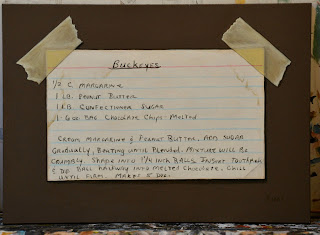 Buckeyes
1/2 C. Margarine
1 lb. Peanut Butter
1 lb. Confectioner Sugar
1 6oz bag Chocolate Chips - Melted
Cream Margarine & Peanut Butter, add sugar
gradually, beating until blended. Mixture will be
crumbly. Shape into 1 1/4 inch balls. Insert toothpick
& dip ball halfway into melted chocolate. Chill
until firm. Makes 5 doz.